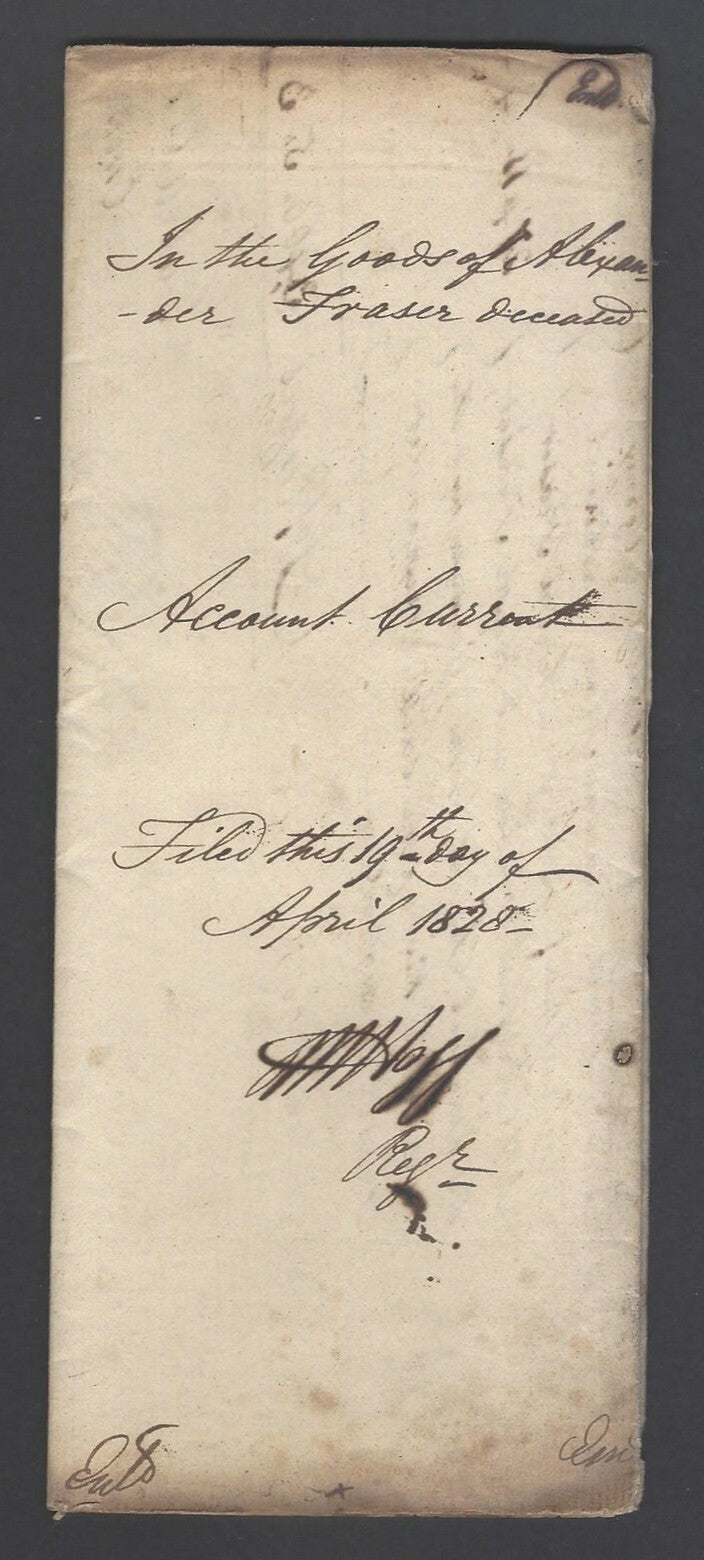 In the Goods of Alexan-
-der Fraser deceased
Account Current
Filed this 19th day of
April 1828-
Regr
Entd